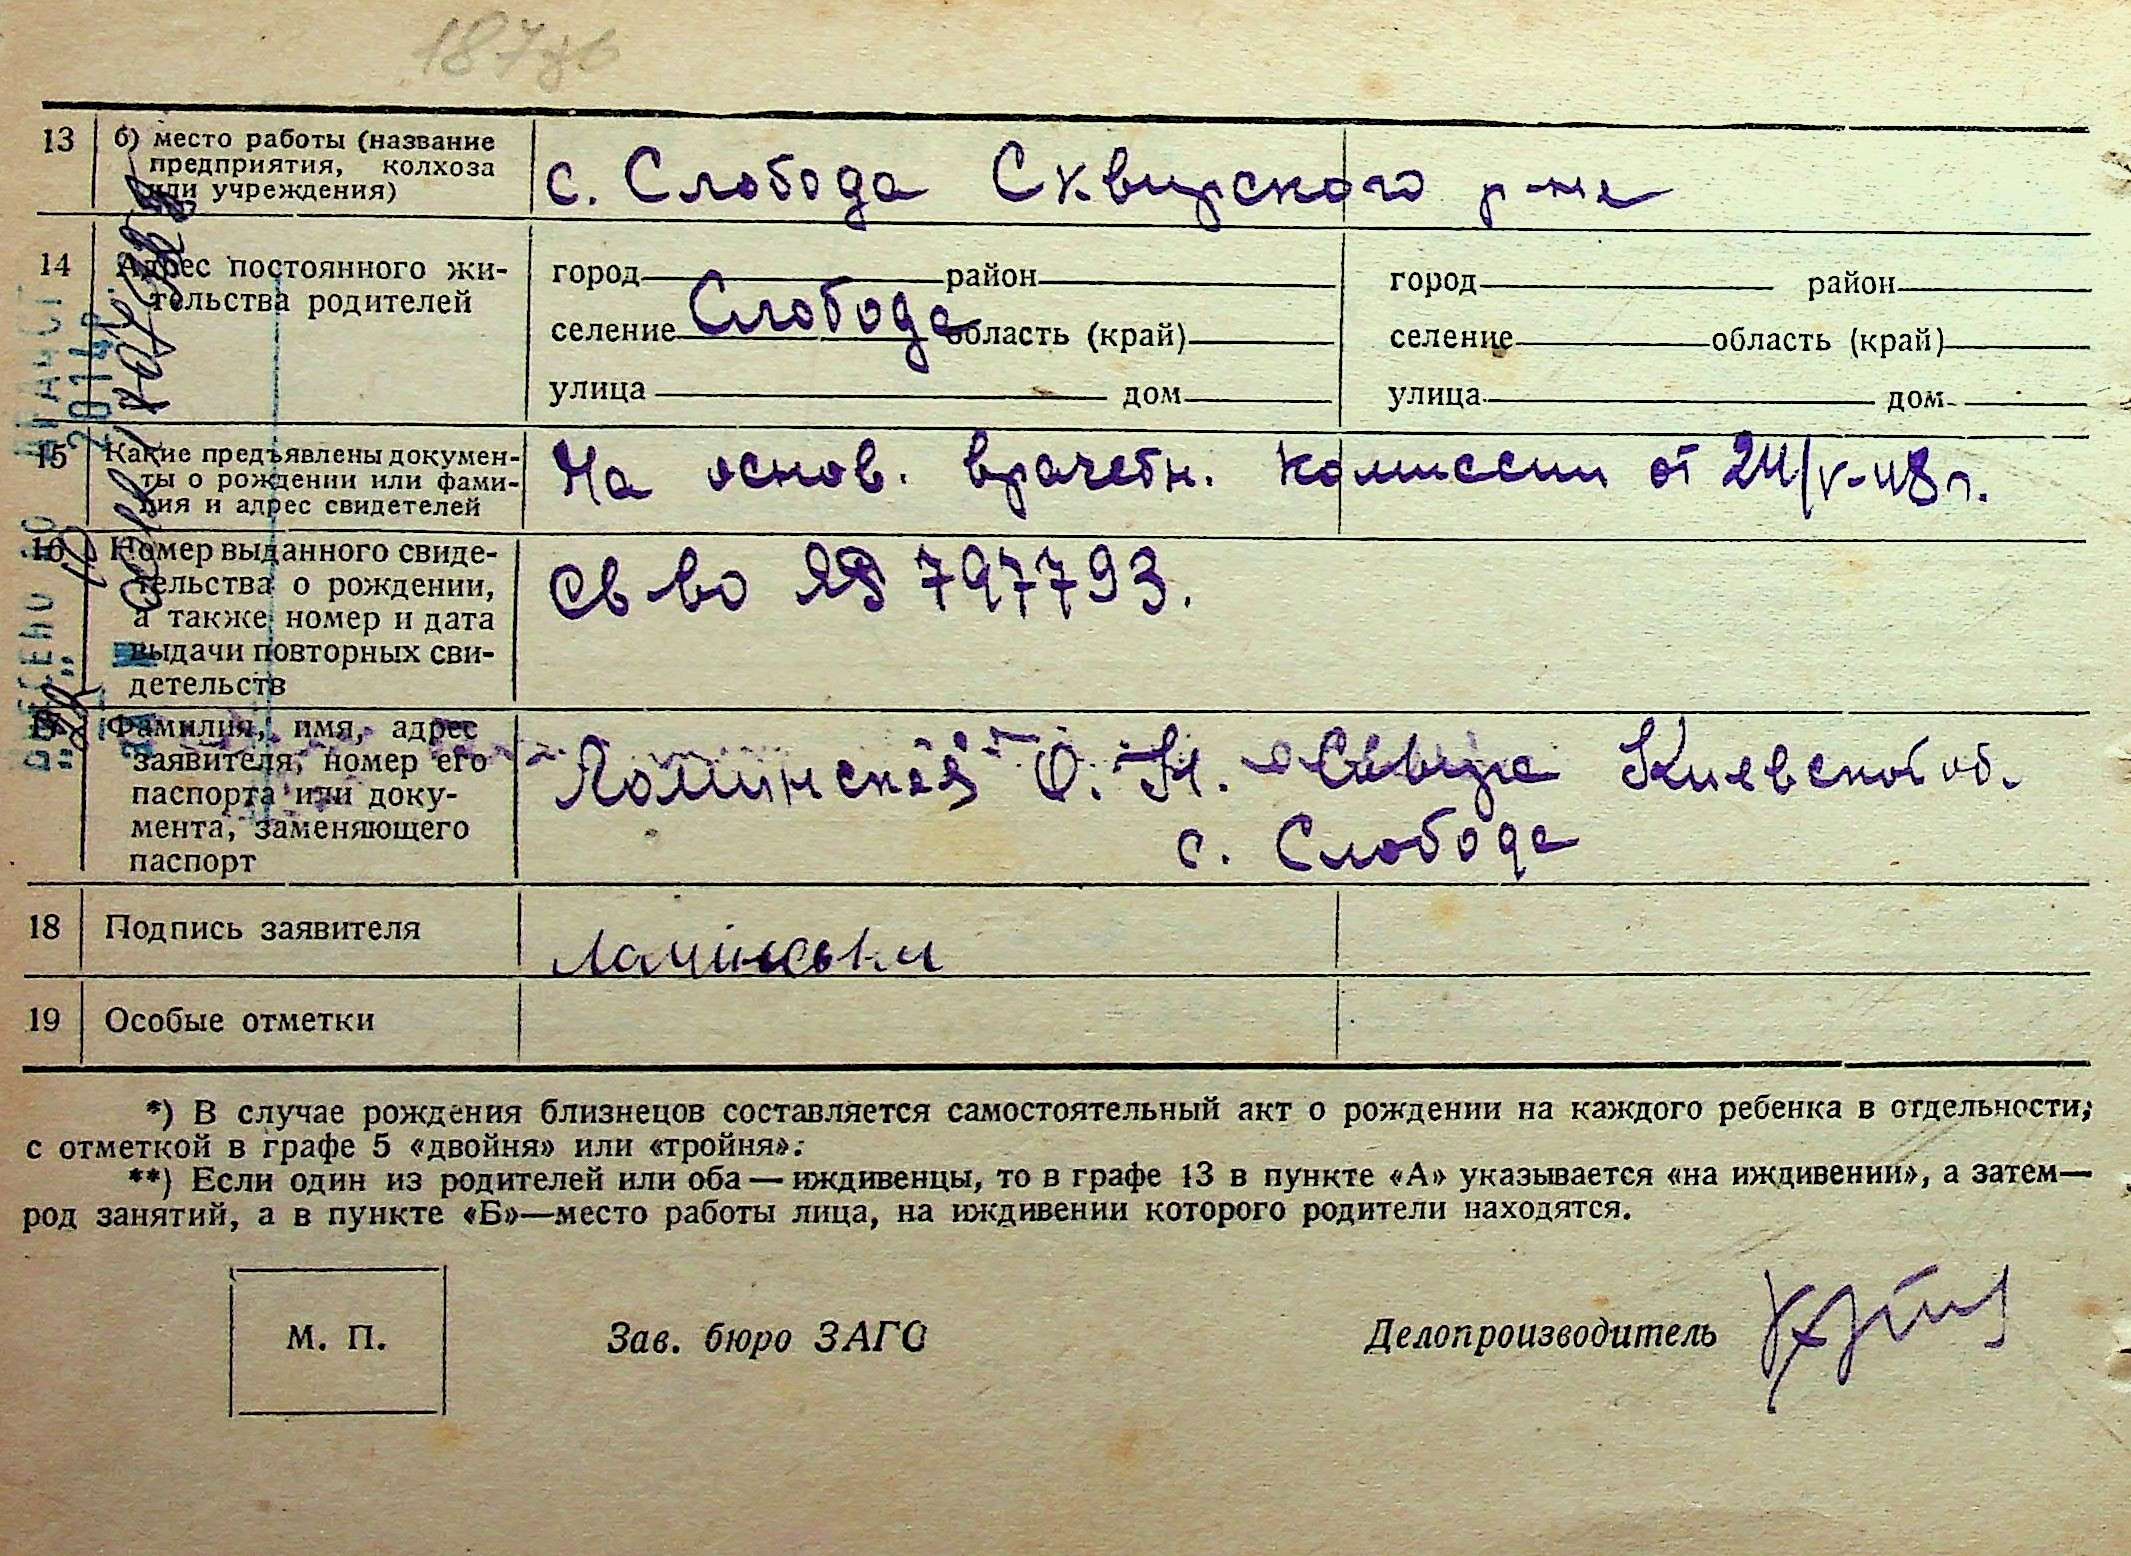 187зв
13 б) место работы (название предприятия, колхоза или учреждения) с. Слобода Сквирского р-на
14 Адрес постоянного жительства родителей
город район город район
селение Слобода область (край) селение область (край)
улица дом улица дом
15 Какие предъявлены документы о рождении или фамилия и адрес свидетелей На основ. врачебн. комиссии от 24/V-48 г.
16 Номер выданного свидетельства о рождении, а также номер и дата выдачи повторных свидетельств Св во ЯЮ 797793.
17 Фамилия, имя, адрес заявителя, номер его паспорта или документа, заменяющего паспорт О. Н. Сквира Киевской об.
с. Слобода
18 Подпись заявителя
19 Особые отметки
*) В случае рождения близнецов составляется самостоятельный акт о рождении на каждого ребенка в отдельности,
с отметкой в графе 5 «двойня» или «тройня».
**) Если один из родителей или оба — иждивенцы, то в графе 13 в пункте «А» указывается «на иждивении», а затем—
род занятий, а в пункте «Б»—место работы лица, на иждивении которого родители находятся.
М. П. Зав. бюро ЗАГС Делопроизводитель